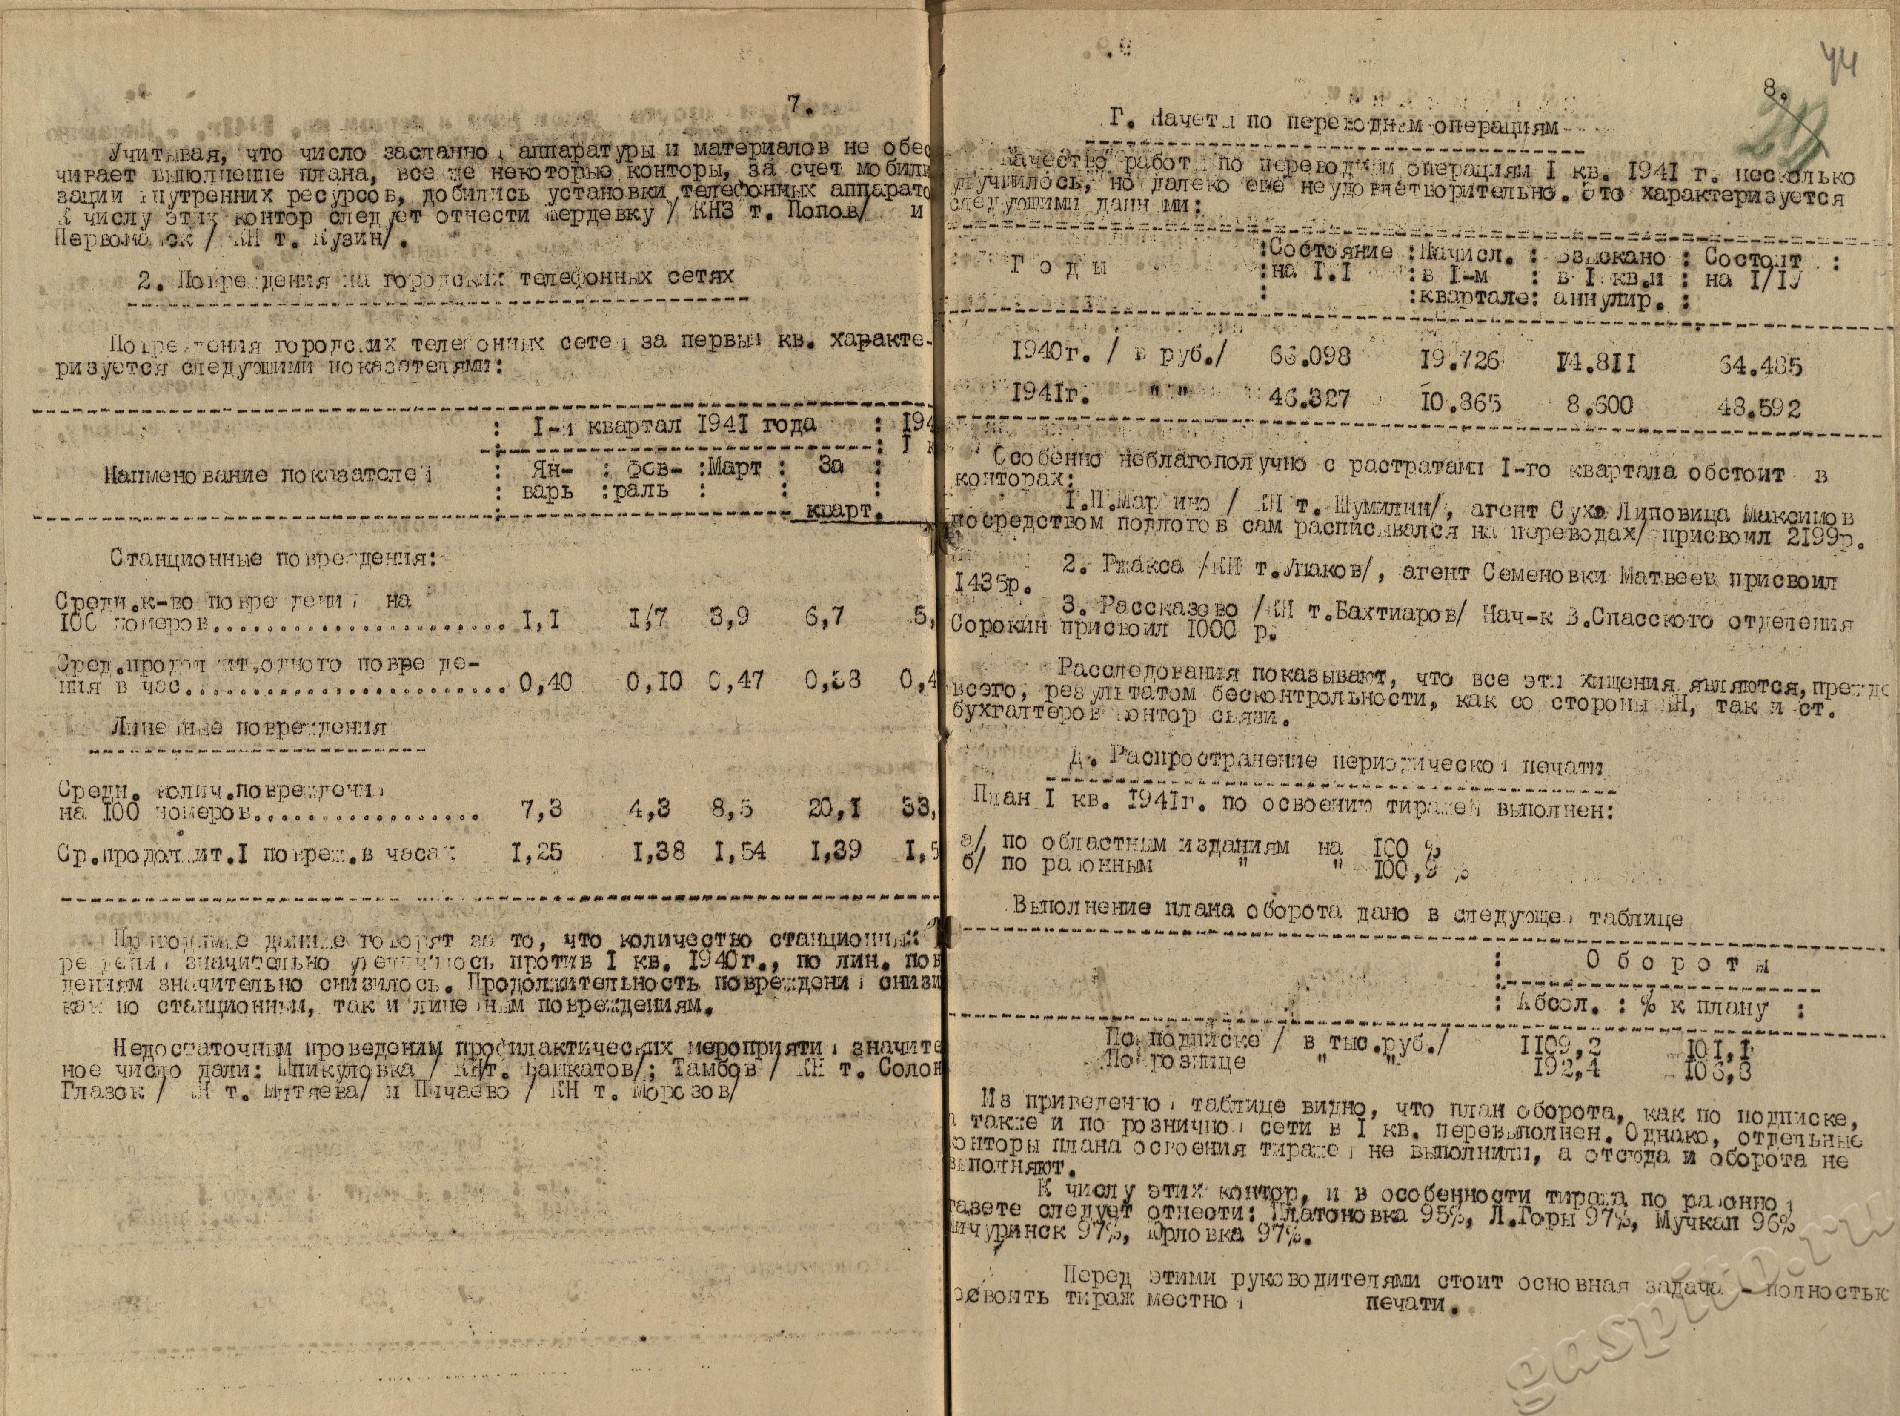 7.
Учитывая, что число засланной аппаратуры и материалов не обес
чивает выполнение плана, все же некоторые конторы, за счет мобили
зации внутренних ресурсов, добились установки телефонных аппарато
К числу этих контор следует отнести Шердевку / КНЗ т. Попов/ и
Первомайск / КН т. Кузин/.
2. Повреждения на городских телефонных сетях
Повреждения городских телефонных сетей за первый кв. характе-
ризуется следующими показателями:
: I-й квартал 1941 года : 194
: I к
Наименование показателей : Ян- : Фев- :Март : За :
: варь :раль : : :
кварт.
Станционные повреждения:
Средн.к-во повреждений на
100 номеров........................ I,I I,7 3,9 6,7 5,
Сред.продолжит.одного поврежде-
ния в час.......................... 0,40 0,10 0,47 0,38 0,4
Линейные повреждения
Средн. колич.повреждений
на 100 номеров................. 7,3 4,3 8,5 20,I 33,
Ср.продолжит.I повреж.в часах I,25 I,38 I,54 I,39 I,5
Приводимые данные говорят за то, что количество станционных
реждений значительно увеличилось против I кв. 1940г., по лин. пов
дениям значительно снизилось. Продолжительность повреждений снизи
как по станционным, так и линейным повреждениям.
Недостаточным проведеним профилактических мероприятий значите
ное число дали: Шпикуловка / КН т. Башкатов/; Тамбов / КН т. Солон
Глазок / КН т. Митяева/ и Пичаево / КН т. Морозов/
44
8.
Г. Начеты по переводным операциям
Качество работы по переводным операциям I кв. 1941 г. несколько
улучшилось, но далеко еще неудовлетворительно. Это характеризуется
следующими данными:
Годы :Состояние :Начисл. : Взыскано : Состоит :
:на I.I :в I-м : в I кв.и : на I/IУ
: :квартале: аннулир. :
1940г. / в руб./ 66.098 19.726 14.811 64.485
1941г. " " 46.327 10.865 8.600 48.592
Особенно неблагополучно с растратами I-го квартала обстоит в
конторах:
I.П.Маринно / КН т. Шумилин/, агент Суха Липовица Максимов
посредством подлогов сам расписывался на переводах/ присвоил 2199р.
2. Ржакса /КН т.Лшаков/, агент Семеновки Матвеев присвоил
1435р.
3. Рассказово /КН т.Бахтиаров/ Нач-к В.Спасского отделения
Сорокин присвоил 1000 р.
Расследования показывают, что все эти хищения являются,прежде
всего, результатом бесконтрольности, как со стороны КН, так и ст.
бухгалтеров контор связи.
Д. Распространение периодической печати
План I кв. 1941г. по освоению тиражей выполнен:
а/ по областным изданиям на 100 %
б/ по районным " " 100,9 %
Выполнение плана оборота дано в следующей таблице
: Обороты
: Абсол. : % к плану :
По подписке / в тыс.руб./ 1109,2 101,1
По рознице " " 192,4 106,8
Из приведенной таблице видно, что план оборота, как по подписке,
а также и по розничной сети в I кв. перевыполнен. Однако, отдельные
конторы плана освоения тиражей не выполнили, а отсюда и оборота не
выполняют.
К числу этих контор, и в особенности тиража по районной
газете следует отнести: Платоновка 95%, Л.Горы 97%, Мучкап 96%
Мичуринск 97%, Юрловка 97%.
Перед этими руководителями стоит основная задача - полностью
освоить тираж местной печати.
gaspito.ru